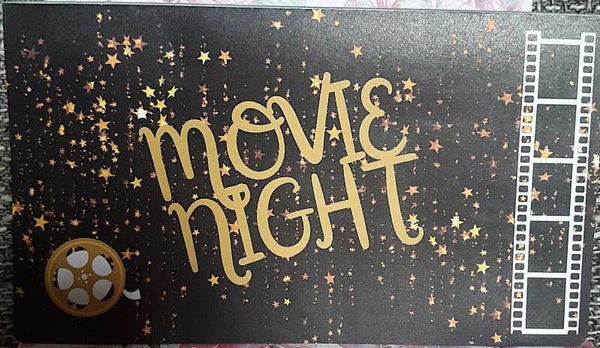 MOVIE
NIGHT